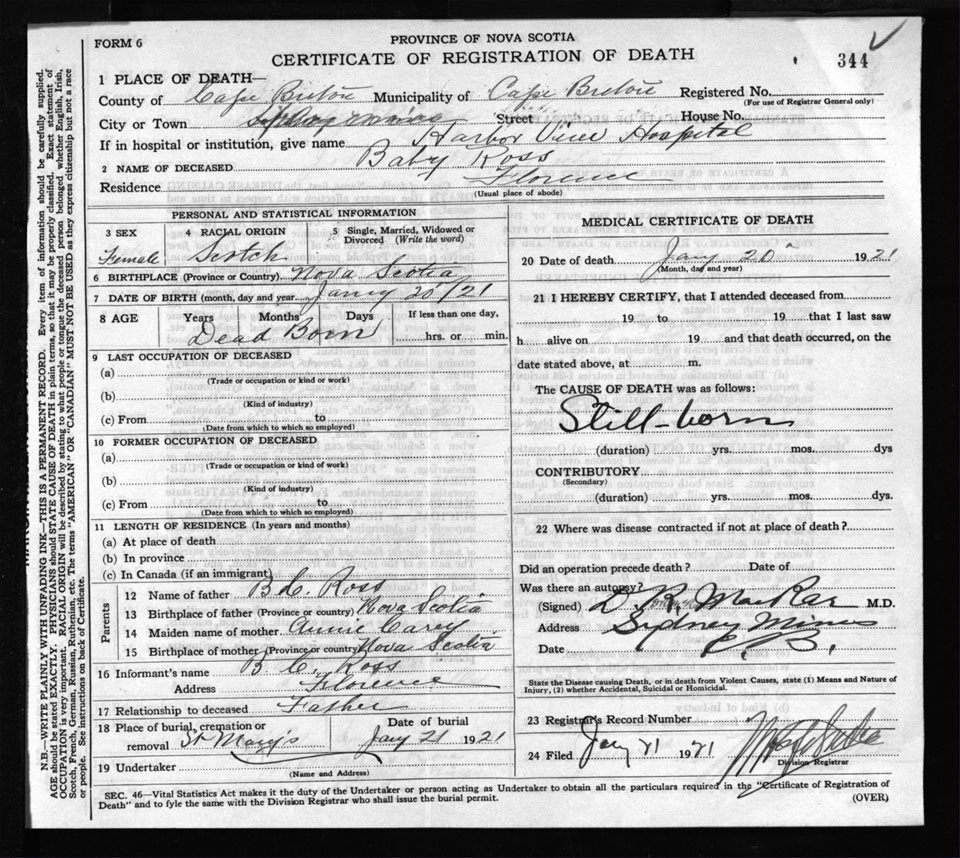 FORM 6
PROVINCE OF NOVA SCOTIA
CERTIFICATE OF REGISTRATION OF DEATH
344
1 PLACE OF DEATH—
County of Cape Breton Municipality of Cape Breton Registered No.
(For use of Registrar General only)
City or Town Sydney mines Street House No.
If in hospital or institution, give name Harbor View Hospital
2 NAME OF DECEASED Baby Ross
Residence Florence
(Usual place of abode)
PERSONAL AND STATISTICAL INFORMATION
3 SEX 4 RACIAL ORIGIN 5 Single, Married, Widowed or Divorced (Write the word)
Female Scotch
6 BIRTHPLACE (Province or Country) Nova Scotia
7 DATE OF BIRTH (month, day and year) Jany 20/21
8 AGE Years Months Days If less than one day,
Dead Born hrs. or min.
9 LAST OCCUPATION OF DECEASED
(a)
(Trade or occupation or kind or work)
(b)
(Kind of industry)
(c) From to
(Date from which to which so employed)
10 FORMER OCCUPATION OF DECEASED
(a)
(Trade or occupation or kind of work)
(b)
(Kind of industry)
(c) From to
(Date from which to which so employed)
11 LENGTH OF RESIDENCE (In years and months)
(a) At place of death
(b) In province
(c) In Canada (if an immigrant)
Parents
12 Name of father B.C. Ross
13 Birthplace of father (Province or country) Nova Scotia
14 Maiden name of mother Annie Carey
15 Birthplace of mother (Province or country) Nova Scotia
16 Informant's name B C. Ross
Address Florence
17 Relationship to deceased Father
18 Place of burial, cremation or removal St Mary's
Date of burial Jany 21 1921
19 Undertaker
(Name and Address)
MEDICAL CERTIFICATE OF DEATH
20 Date of death Jany 20 1921
(Month, day and year)
21 I HEREBY CERTIFY, that I attended deceased from
19 to 19 that I last saw
h alive on 19 and that death occurred, on the
date stated above, at m.
The CAUSE OF DEATH was as follows:
Still-born
(duration) yrs. mos. dys
CONTRIBUTORY
(Secondary)
(duration) yrs. mos. dys.
22 Where was disease contracted if not at place of death?
Did an operation precede death? Date of
Was there an autopsy?
(Signed) D. R. MacRae M.D.
Address Sydney Mines
Date C.B.
State the Disease causing Death, or in death from Violent Causes, state (1) Means and Nature of
Injury, (2) whether Accidental, Suicidal or Homicidal.
23 Registrar's Record Number
24 Filed Jany 21 1921
Division Registrar
SEC. 46—Vital Statistics Act makes it the duty of the Undertaker or person acting as Undertaker to obtain all the particulars required in the "Certificate of Registration of
Death" and to fyle the same with the Division Registrar who shall issue the burial permit.
(OVER)
N.B.—WRITE PLAINLY WITH UNFADING INK—THIS IS A PERMANENT RECORD. Every item of information should be carefully supplied.
AGE should be stated EXACTLY. PHYSICIANS should STATE CAUSE OF DEATH in plain terms, so that it may be properly classified. Exact statement of
OCCUPATION is very important. RACIAL ORIGIN will be described by stating to what people or tongue the deceased person belonged, whether English, Irish,
Scotch, French, German, Russian, Ruthenian, etc. The terms "AMERICAN" or "CANADIAN" MUST NOT BE USED as they express citizenship but not a race
or people. See instructions on back of Certificate.